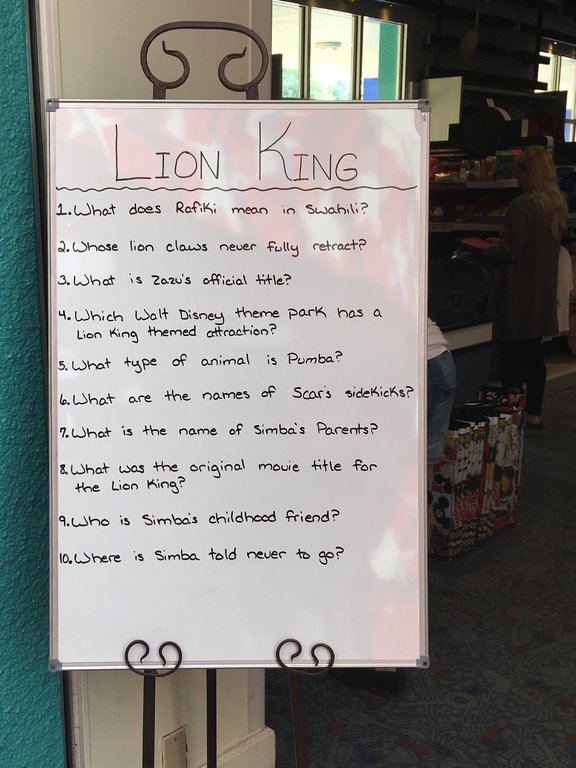 LION KING
1. What does Rafiki mean in Swahili?
2. Whose lion claws never fully retract?
3. What is Zazu's official title?
4. Which Walt Disney theme park has a
Lion King themed attraction?
5. What type of animal is Pumba?
6. What are the names of Scar's sidekicks?
7. What is the name of Simba's Parents?
8. What was the original movie title for
the Lion King?
9. Who is Simba's childhood friend?
10. Where is Simba told never to go?